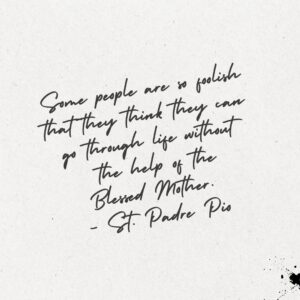 Some people are so foolish
that they think they can
go through life without
the help of the
Blessed Mother.
- St. Padre Pio